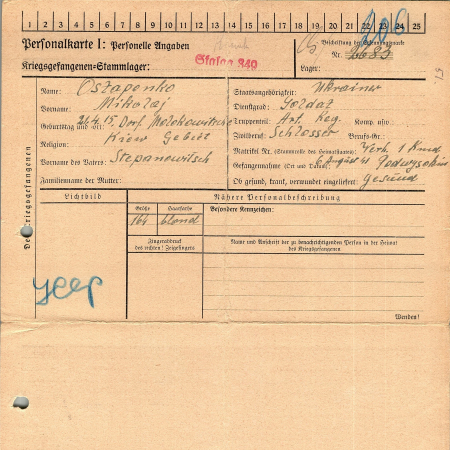 1 2 3 4 5 6 7 8 9 10 11 12 13 14 15 16 17 18 19 20 21 22 23 24 25
Personalkarte I: Personelle Angaben
Kriegsgefangenen-Stammlager: Stalag 340
Beschriftung der Erkennungsmarke
Nr.
Lager:
Des Kriegsgefangenen
Name: Ostapenko
Vorname: Mikolaj
Geburtstag und -ort: 26.4.15. Dorf
Religion: Kiew Gebiet
Vorname des Vaters: Stepanowitsch
Familienname der Mutter:
Staatsangehörigkeit: Ukrainer
Dienstgrad: Soldat
Truppenteil: Art. Reg. Komp. usw.:
Zivilberuf: Schlosser Berufs-Gr.:
Matrikel Nr. (Stammrolle des Heimatstaates): Verh. 1 Kind
Gefangennahme (Ort und Datum): 6 August 41
Ob gesund, krank, verwundet eingeliefert: gesund
Lichtbild
Nähere Personalbeschreibung
Größe
Haarfarbe
Besondere Kennzeichen:
164
blond
Fingerabdruck
des rechten! Zeigefingers
Name und Anschrift der zu benachrichtigenden Person in der Heimat
des Kriegsgefangenen
Wenden!